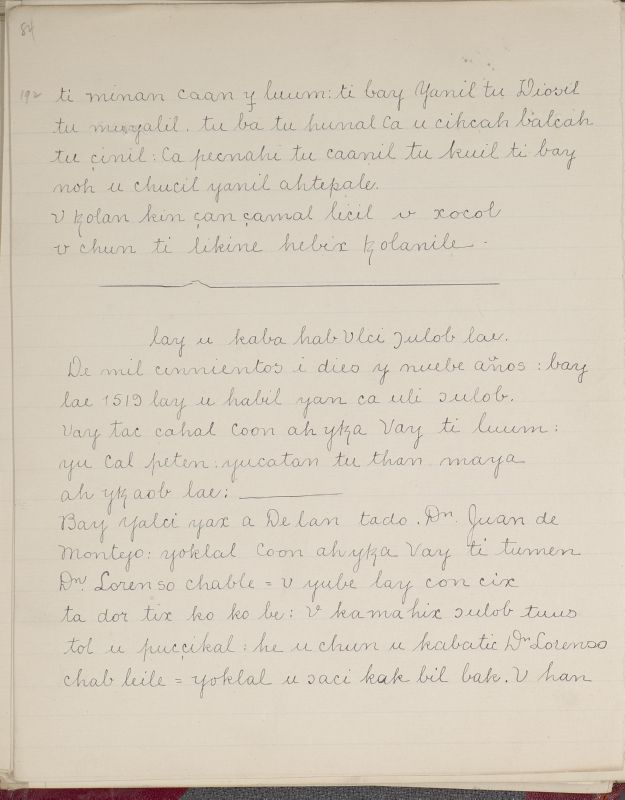 84
192 ti minan caan y luum: ti bay Yanil tu Diosil
tu munyalil. tu ba tu hunal Ca u cihcah balcah
tu çinil: Ca pecnahi tu caanil tu kuil ti bay
noh u chucil yanil ahtepale.
V ꝁolan kin çan çamal licil u xocol
v chun ti likine hebix ꝁolanile.
lay u kaba hab Vlci Ɔulob lae.
De mil cinnientos i dies y nuebe años: bay
lae 1519 lay u habil yan ca uli ɔulob.
Vay tac cahal Coon ah yꝁa Vay ti luum:
yu Cal peten: yucatan tu than maya
ah yꝁaob lae:
Bay Yalci yax a De lan tado. Dn. Juan de
Montejo: yoklal Coon ah yꝁa Vay ti tumen
Dn. Lorenso chable = v yube lay con cix
ta dor tix ko ko be: V kamahix ɔulob tuus
tol u pucçikal: he u chun u kabatic Dn Lorenso
chab leile = yoklal u ɔaci kak bil bak. V han